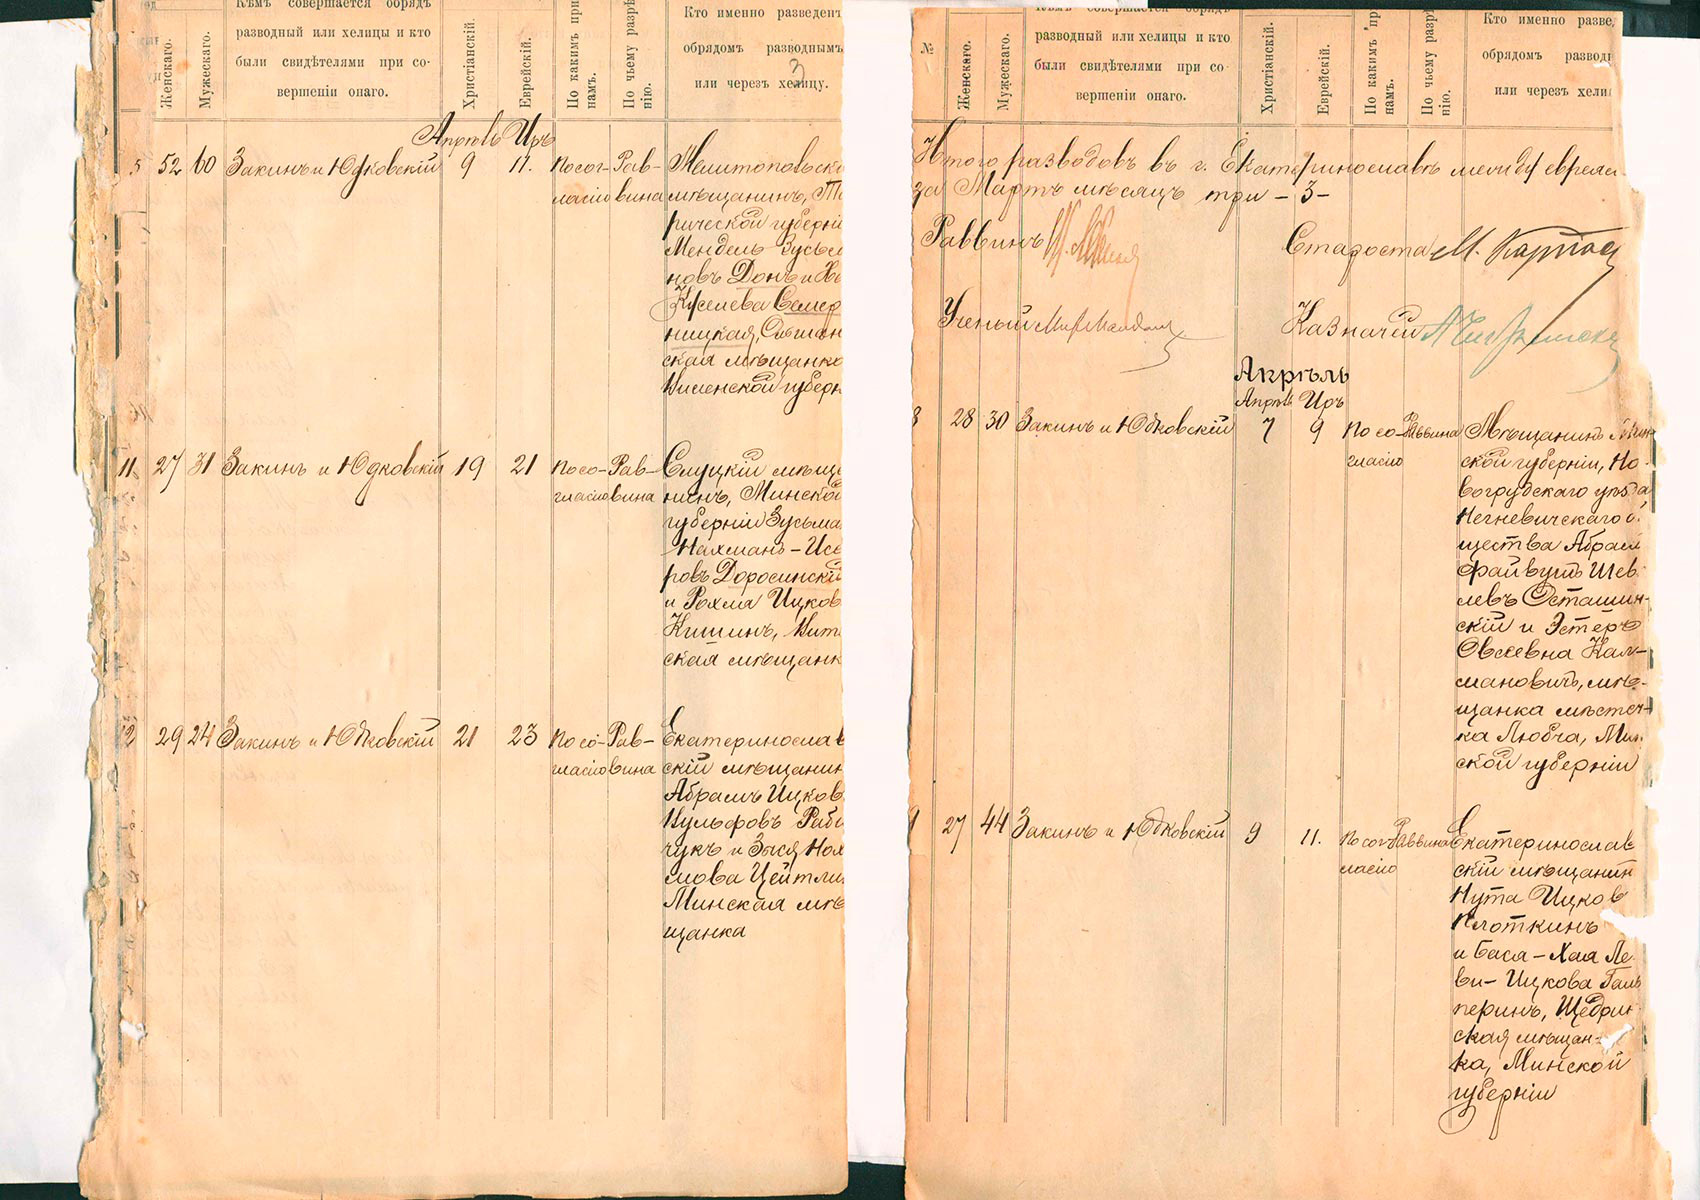 Кѣмъ совершается обрядъ
разводный или хелицы и кто
были свидѣтелями при со-
вершеніи онаго.
Женскаго.
Мужескаго.
Христіанскій.
Еврейскій.
По какимъ при
намъ.
По чьему разрѣ
нію.
Кто именно разведен
обрядомъ разводнымъ
или через хелицу.
3
Апрѣль Иръ
5 52 60 Закинъ и Юдковскій 9 11. По сог- Рав-
ласію вина
Мелитопольск
мѣщанинъ, Та
рической губерні
Мендель Зусье
новъ Донъ и
Куселева Семер
ницкая,
ская мѣщанка
Виленской губерн
11 27 31 Закинъ и Юдковскій 19 21 По со- Рав-
гласію вина
Слуцкій мѣща
нинъ, Минской
губерніи Зусьма
Нахманъ-Исе
ровъ Доросинскі
и Рохма Ицков
Кишинъ, Вите
ская мѣщанк
12 29 24 Закинъ и Юдковскій 21 23 По со- Рав-
гласію вина
Екатеринослав
скій мѣщанин
Абрамъ Ицков
Вульфовъ Раби
чукъ и Зыся Нох
мова Цейтли
Минская мѣ
щанка
№
Женскаго.
Мужескаго.
Кѣмъ совершается обрядъ
разводный или хелицы и кто
были свидѣтелями при со-
вершеніи онаго.
Христіанскій.
Еврейскій.
По какимъ при
намъ.
По чьему разрѣ
нію.
Кто именно разве
обрядомъ разводн
или через хели
Итого разводовъ въ г. Екатеринославѣ между евреям
за Мартъ мѣсяцъ три - 3 -
Раввинъ
Староста М.
Ученый
Казначей
Апрѣль
Апрѣль Иръ
8 28 30 Закинъ и Юдковскій 7 9 По со- Раввина
гласію
Мѣщанинъ Мин
ской губерніи, Но-
вогрудскаго уѣзда
Негневичскаго об
щества Абрам
Файвушъ Шев
левъ Осташин-
скій и Эстеръ
Овсеевна Кал-
мановичъ, мѣ-
щанка мѣстеч-
ка Любча, Мин
ской губерніи
9 27 44 Закинъ и Юдковскій 9 11. По сог- Раввина
ласію
Екатеринослав
скій мѣщанин
Нута Ицков
Плоткинъ
и Бася-Хая Ле-
ви-Ицкова Галь
перинъ, Щедрин
ская мѣщан-
ка, Минской
губерніи